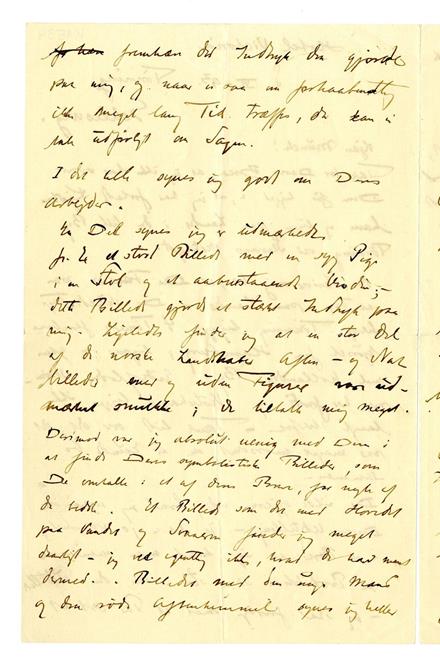 fremhæve det Indtryk den gjorde
paa mig, og naar vi saa om forhaabentlig
ikke meget lang Tid træffes, da kan vi
tale udførligt om Sagen.
I det hele synes jeg godt om Deres
Arbejder.
En Del synes jeg er udmærkede.
f. Ex et stort Billede med en syg Pige
i en Stol og et aabentstaaende Vindue;
dette Billede gjorde et stærkt Indtryk paa
mig. Ligeledes finder jeg at en stor Del
af de norske Landskaber Aften – og Nat
billeder med og uden Figurer var ud-
mærket smukke; de tiltalte mig meget.
Derimod var jeg absolut uenig med Dem i
at finde Deres symbolistiske Billeder, som
De omtalte i et af deres Breve, for nogle af
de bedste. Et Billede som det med Hovedet
paa Vandet og finder jeg meget
daarligt – jeg ved egentlig ikke, hvad De har ment
dermed. Billedet med den unge Mand
og den røde Aftenhimmel synes jeg heller